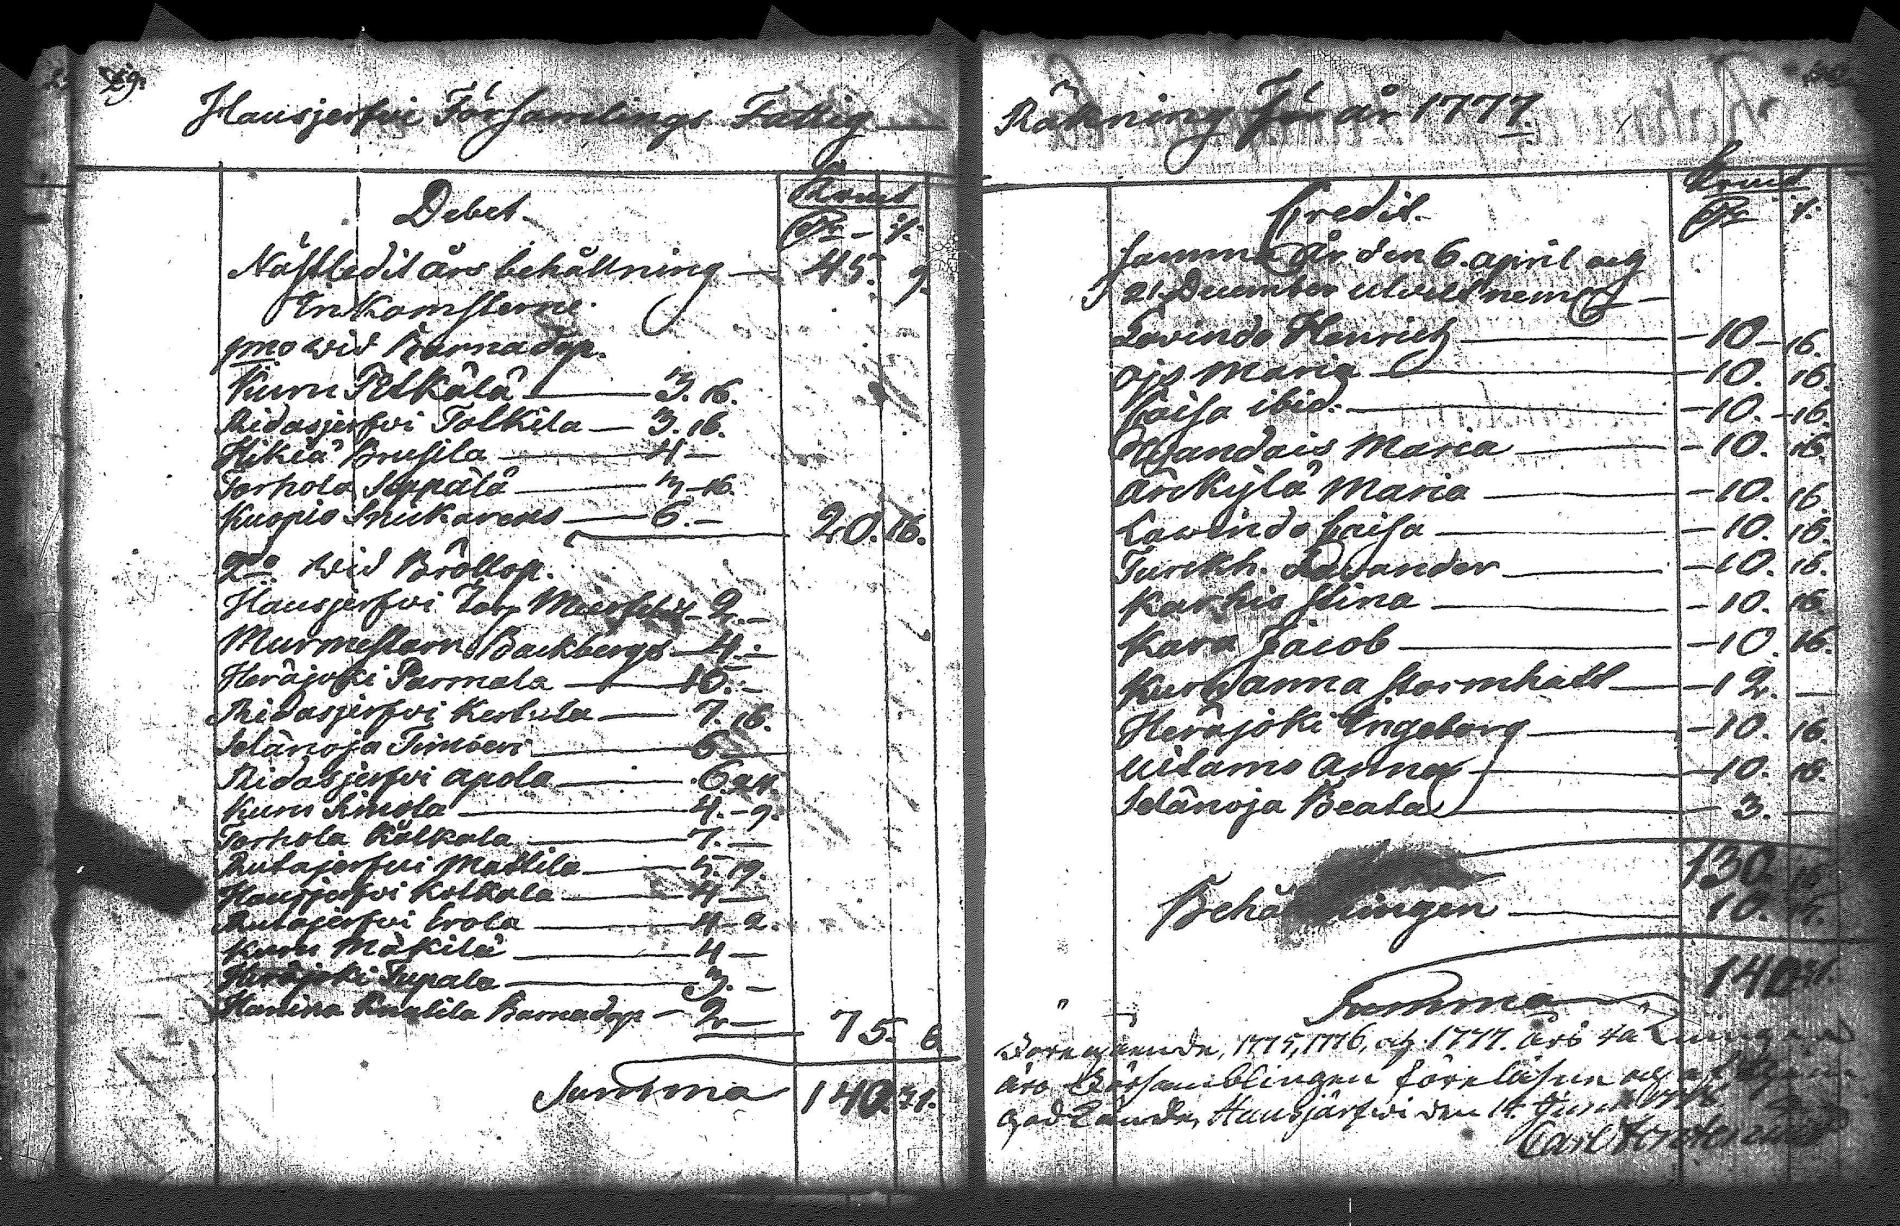 29.
Hausjerfvi Församlings Fattig
Debet.
Näst ledit års behållning — 45. 9.
Inkomsterne.
1mo wid Barnadop.
Kuru Pelkälä — 3. 16.
Ridasjerfvi Tolkila — 3. 16.
Hikiä Brusila — 4 —
Torhola Seppälä — 3 — 16.
Kuopio Snickarens — 6. — 20. 16.
2do wid Bröllop.
Hausjerfvi Torp — 2. —
Murmestarn Backbergs — 4. —
Heräjoki Parmala — 15. —
Ridasjerfvi Kertula — 7. 16.
Selänoja Timoen — 6
Ridasjerfvi Apola — 6. 24.
Kuru Simola — 4. — 9.
Torhola Kålkala — 7. —
Rutajerfvi Mattila — 5. 19.
Hausjerfvi Kolkala — 4 —
Rutajerfvi Erola — 4 — 2.
Kuru Mäkilä — 4 —
Heräjoki Tupala — 3. —
Barnadop — 2 — 75. 6
Summa 140. 31.
Räkning för år 1777.
Credit.
Samma År den 6. April och
21 December utdelt nemn.
Lavindo Henrich — 10 — 16.
Ojs Maria — 10. 16.
Caisa ibid. — 10. — 16.
Maria — 10. 16.
Årckylä Maria — 10. 16.
Lawindo Caisa — 10. 16.
Turckh. — 10. 16.
Karhis Stina — 10. 16.
Kara Jacob — 10. 16.
Kuru Anna Stormhatt — 12. —
Heräjoki Ingeborg — 10. 16.
Uitamo Anna — 10. 16.
Selänoja Beata — 3. —
130. 16
Behållningen — 10. 15.
Summa 140. 31.
Föregående, 1775, 1776, och 1777. Års
äro Församblingen föreläsne och
godkände, Hausjärfvi den 14. Junii
Carl